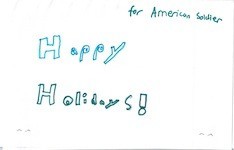 for American Soldier
Happy
Holidays!